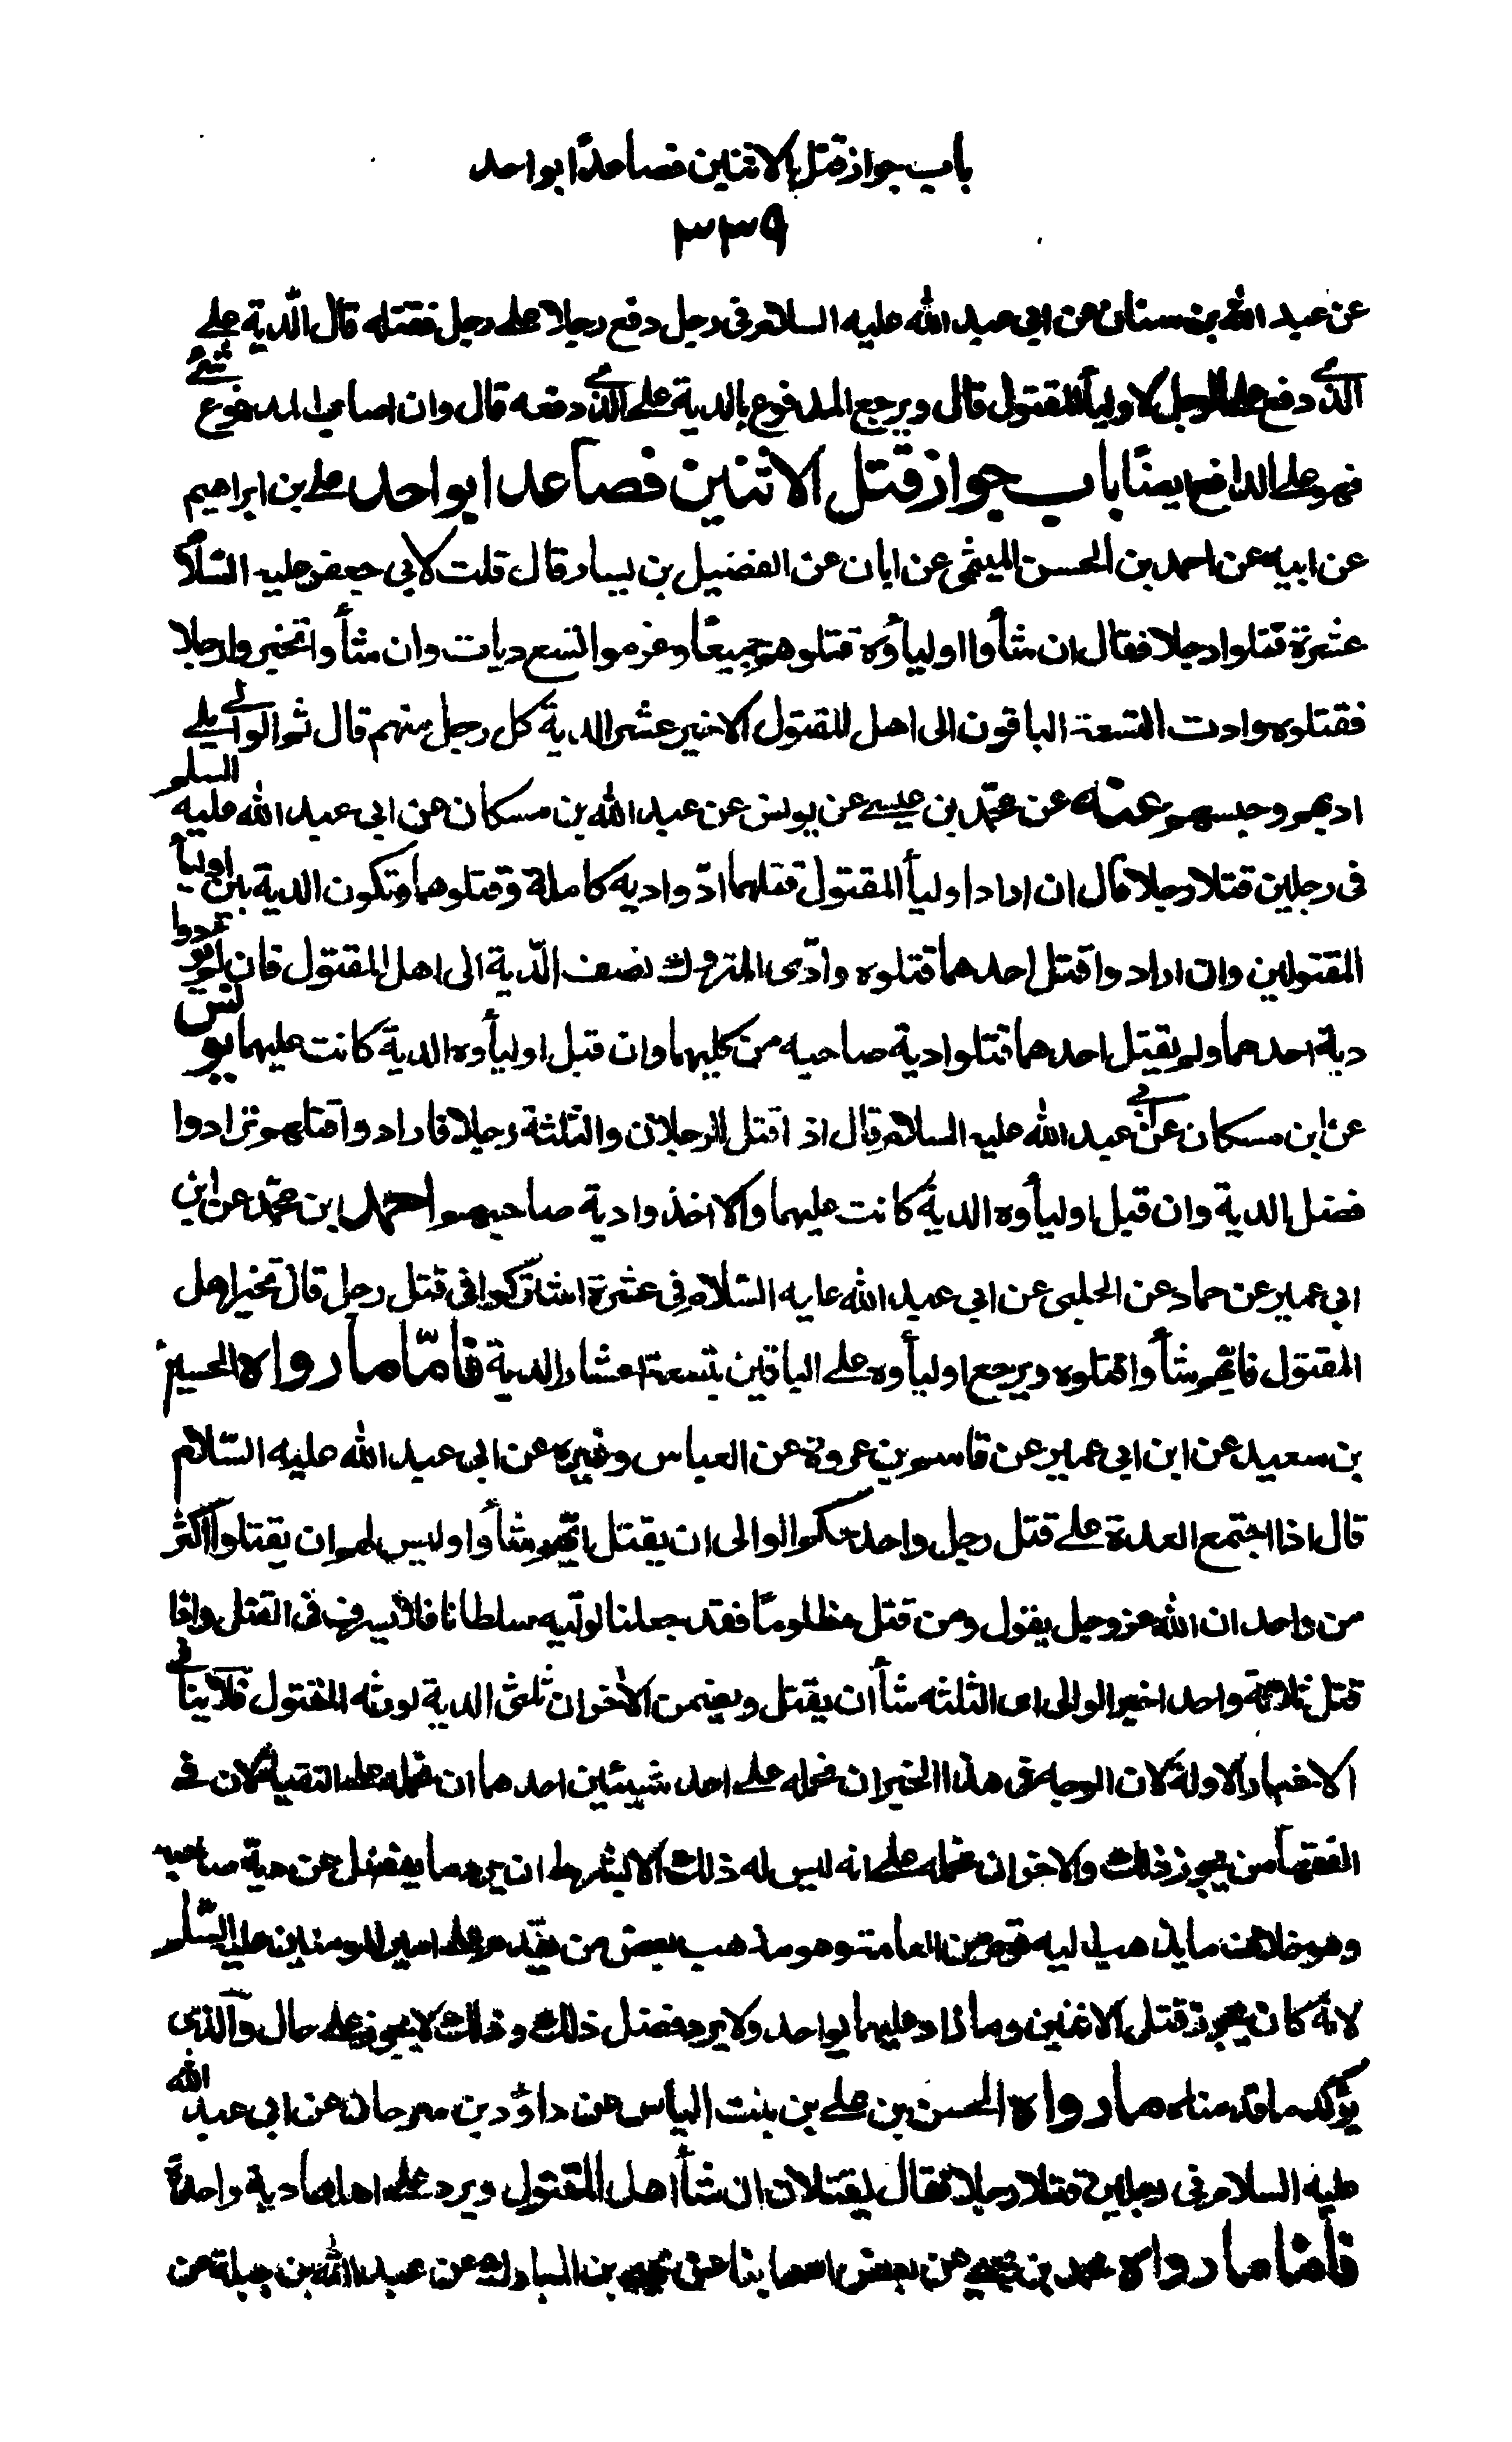 باب جواز قتل الاثنين فصاعدًا بواحد
٣٣٩
عن عبد الله بن سنان عن ابي عبد الله عليه السلام في رجل دفع رجلا على رجل فقتله قال الدّية على
الذي دفع على الرجل لاولياء المقتول قال ويرجع المدفوع بالدية على الذي دفعه قال وان اصاب المدفوع شئ
فهو على الدافع ايضًا باب جواز قتل الاثنين فصاعدا بواحد على بن ابراهيم
عن ابيه عن احمد بن الحسن الميثمى عن ابان عن الفضيل بن يسار قال قلت لابي جعفر عليه السّلام
عشرة قتلوا رجلا فقال ان شأوا اولياؤه قتلوهم جميعًا وغرموا تسع ديات وان شأوا تخيروا رجلا
فقتلوه وادت التسعة الباقون الى اهل المقتول الاخير عشر الدية كل رجل منهم قال ثم الوالي يلي
ادبهم وحبسهم عنه عن محمّد بن عيسى عن يونس عن عبد الله بن مسكان عن ابي عبد الله عليه السلم
في رجلين قتلا رجلا قال ان اراد اولياء المقتول قتلهما ادّوا دية كاملة وقتلوهما وتكون الدية بين اولياء
المقتولين وان ارادوا قتل احدهما قتلوه وادّى المتروك نصف الدّية الى اهل المقتول فان لم يؤدوا
دية احدهما ولم يقتل احدهما قتلوا دية صاحبه من كليهما وان قبل اولياؤه الدية كانت عليهما يونس
عن ابن مسكان عن ابي عبد الله عليه السلام قال اذا قتل الرجلان والثلثة رجلا فارادوا قتلهم ترادوا
فضل الدية وان قبل اولياؤه الدية كانت عليهما والا اخذوا دية صاحبهم احمد ابن محمّد عن ابن
ابى عمير عن حماد عن الحلبى عن ابي عبد الله عليه السّلام في عشرة اشتركوا في قتل رجل قال تخير اهل
المقتول فايّهم شأوا قتلوه ويرجع اولياؤه على الباقين بتسعة اعشار الدية فامّا ما رواه الحسين
بن سعيد عن ابن ابي عمير عن قاسم بن عروة عن العباس وغيره عن ابي عبد الله عليه السّلام
قال اذا اجتمع العدة على قتل رجل واحد حكم الوالى ان يقتل ايّهم شأوا وليس لهم ان يقتلوا اكثر
من واحد ان الله عز وجل يقول ومن قتل مظلومًا فقد جعلنا لوليّه سلطانا فلا يسرف فى القتل واذا
قتل ثلاثة واحد اخير الوالى اى الثلثه شأ ان يقتل ويضمن الاخران ثلثى الدية لورثه المقتول فلا ينافي
الاخبار الاولة لان الوجه فى هذا الخبر ان نحمله على احد شيئين احدهما ان نحمله على التقية لان في
الفقهاء من يجوز ذلك والاخر ان نحمله على انه ليس له ذلك الا بشرط ان يرد ما يفضل عن دية صاحبه
وهو خلاف ما يذهب اليه قوم من العامة وهو مذهب بعض من تقدم على امير المومنين عليه السّلم
لانّه كان يجوز قتل الاثنين وما زاد عليهما بواحد ولا يرد فضل ذلك وذلك لا يجوز على حال والّذى
يؤكد ما قدمناه ما رواه الحسن بن على بن بنت الياس عن داؤد بن سرحان عن ابى عبد الله
عليه السلام في رجلين قتلا رجلا فقال يقتلان ان شأ اهل المقتول ويرد على اهلهما دية واحدة
فأمّا ما رواه محمد بن يحيى عن بعض اصحابنا عن يحيى بن المبارك عن عبد الله بن جبلة عن